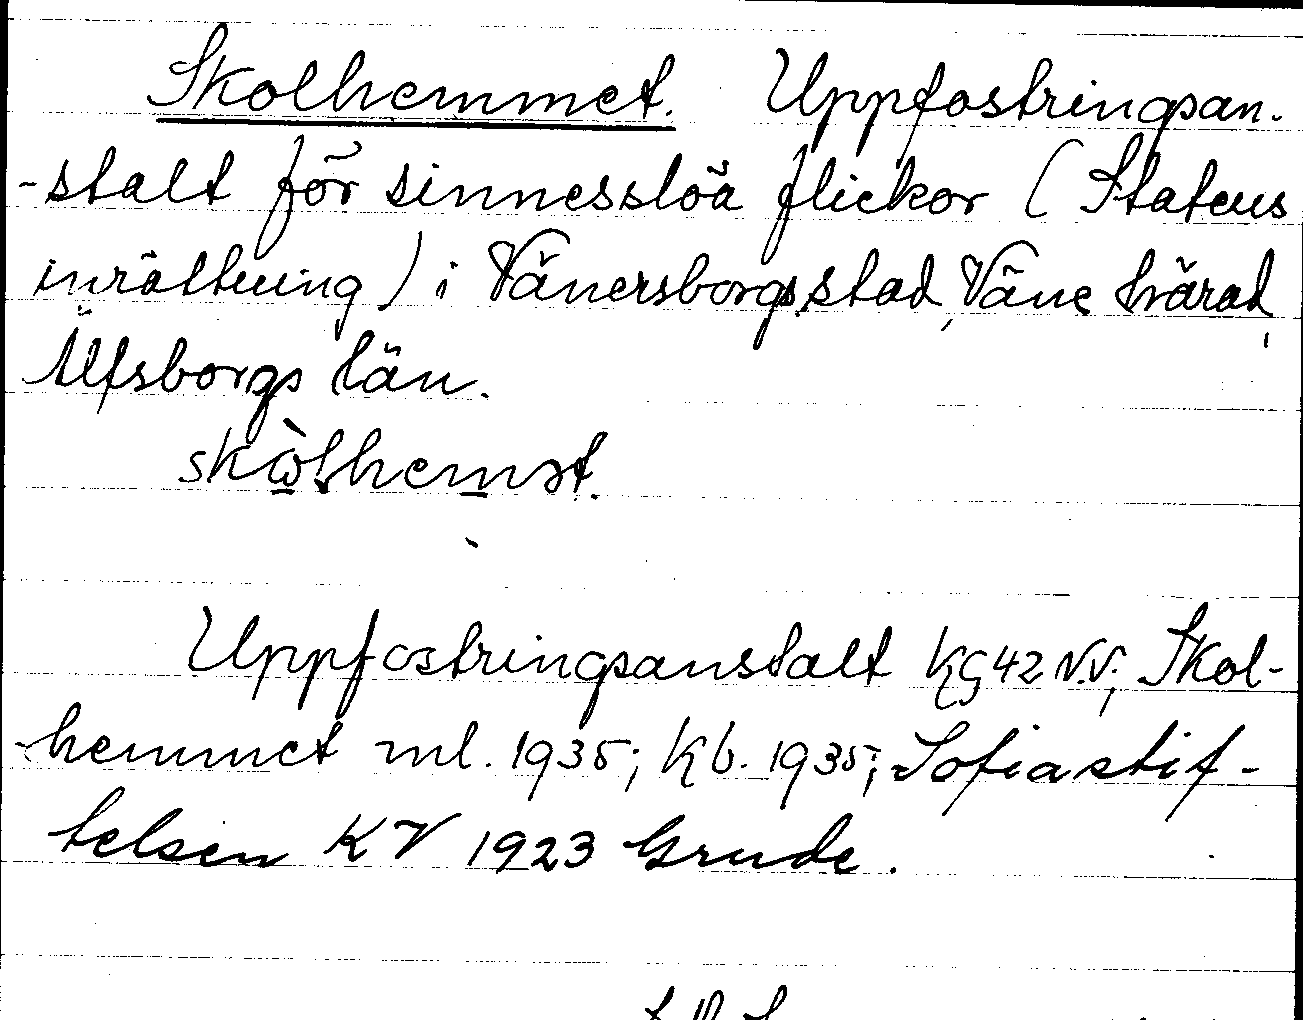 Skolhemmet. Uppfostringsan-
-stalt för sinnesslöa flickor (Statens
inrättning) i Vänersborgs stad, Väne härad,
Älfsborgs län.
Uppfostringsanstalt KG42 N.V.; Skol-
hemmet ml. 1935; Kb. 1935; Sofiastif-
telsen KV 1923 Grude.